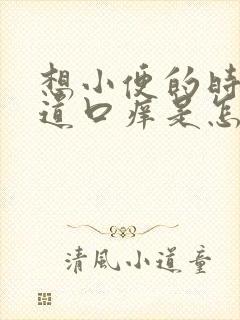 想小便的时
道口痒是怎
清風小道童